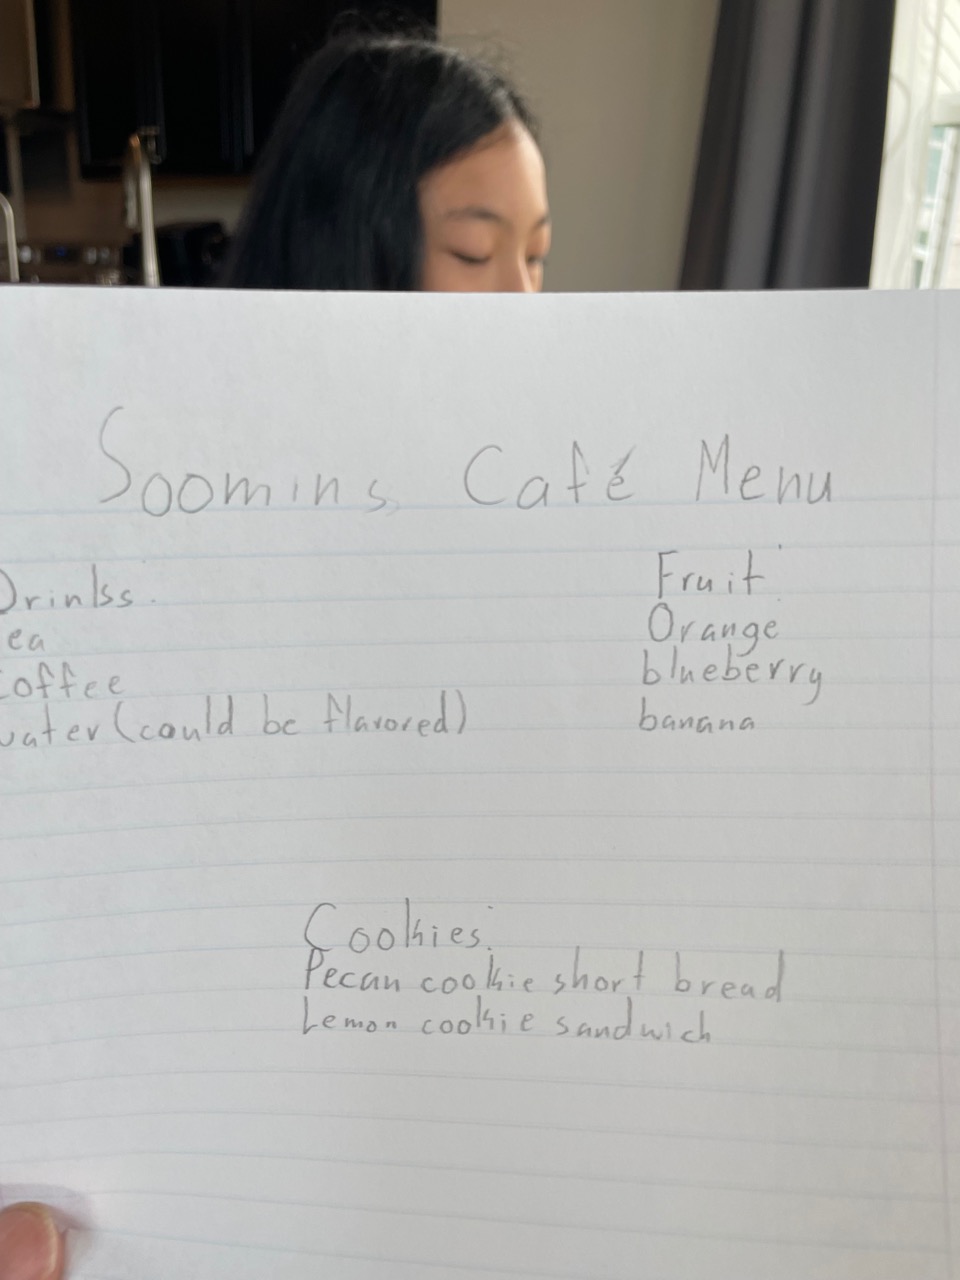 Soomins Café Menu
Drinkss:
ea
Coffee
water (could be flavored)
Fruit:
Orange
blueberry
banana
Cookies:
Pecan cookie short bread
Lemon cookie sandwich